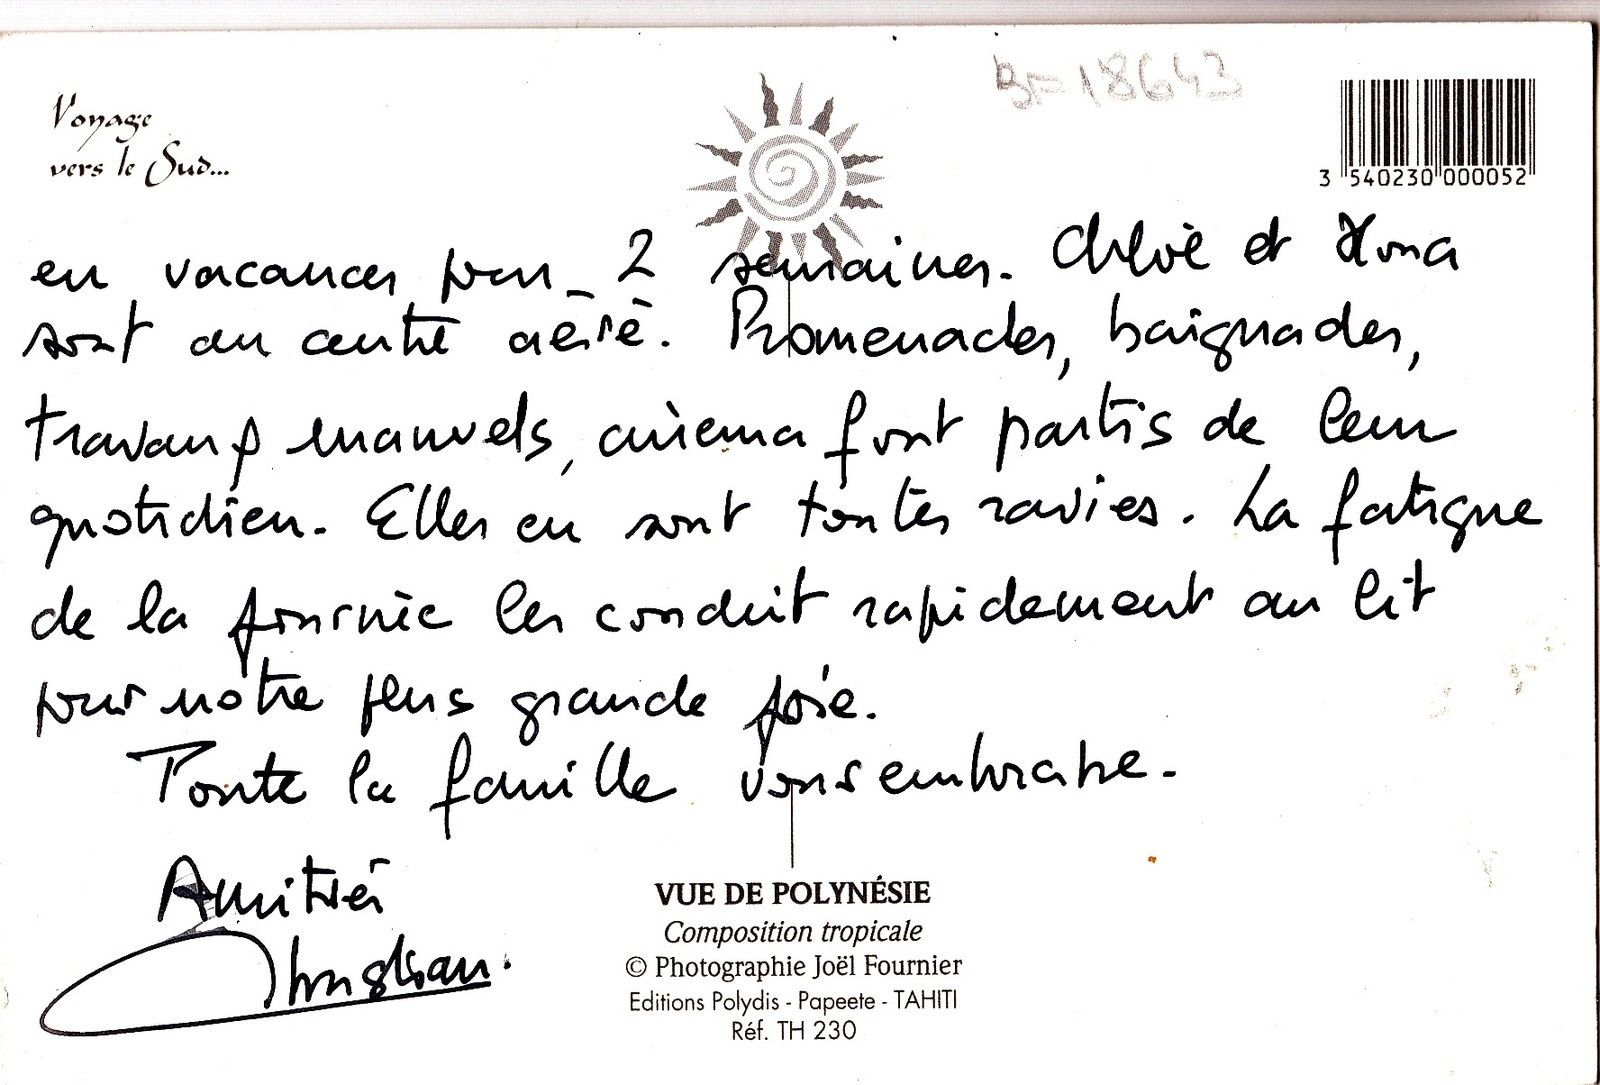 Voyage
vers le Sud...
BF 18643
3 540230 000052
en vacances pour 2 semaines. Chloé et
sont au centre aéré. Promenades, baignades,
travaux manuels, cinéma font partis de leur
quotidien. Elles en sont toutes ravies. La fatigue
de la journée les conduit rapidement au lit
pour notre plus grande joie.
Toute la famille vous embrasse.
Amitiés
VUE DE POLYNÉSIE
Composition tropicale
© Photographie Joël Fournier
Editions Polydis - Papeete - TAHITI
Réf. TH 230